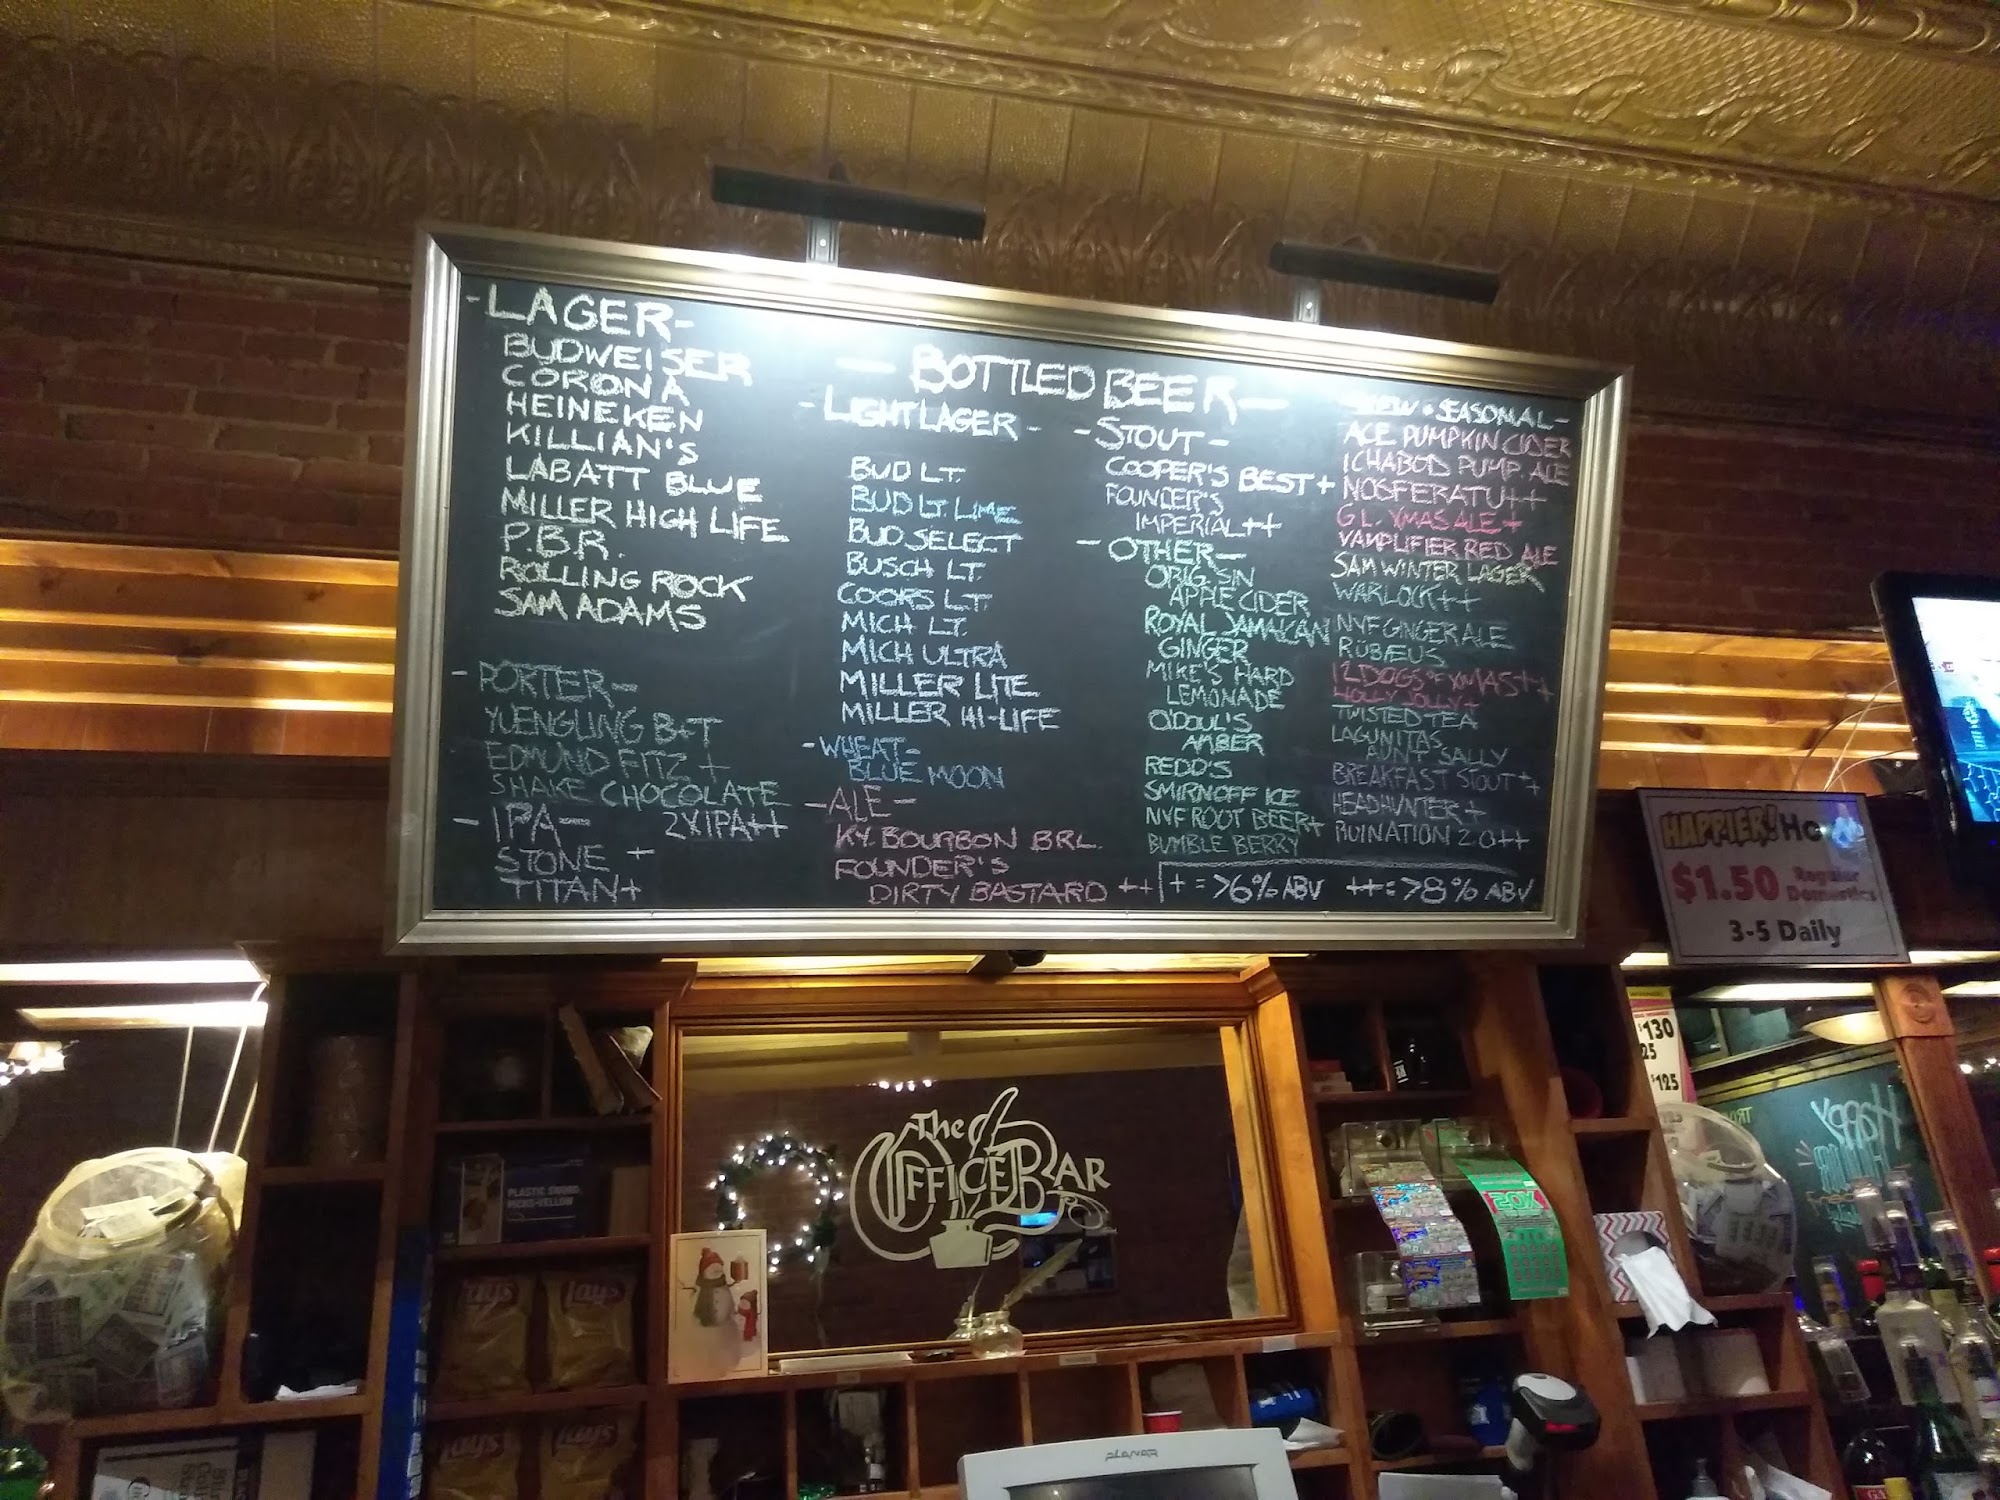 -LAGER-
BUDWEISER
CORONA
HEINEKEN
KILLIAN'S
LABATT BLUE
MILLER HIGH LIFE
P.B.R.
ROLLING ROCK
SAM ADAMS
-PORTER-
YUENGLING B+T
EDMUND FITZ +
SHAKE CHOCOLATE
-IPA- 2XIPA++
STONE +
TITAN+
- BOTTLED BEER -
-LIGHT LAGER-
BUD LT.
BUD LT. LIME
BUD SELECT
BUSCH LT.
COORS LT.
MICH LT.
MICH ULTRA
MILLER LITE
MILLER HI-LIFE
-WHEAT-
BLUE MOON
-ALE-
KY. BOURBON BRL.
FOUNDER'S
DIRTY BASTARD ++
-STOUT-
COOPER'S BEST+
FOUNDER'S
IMPERIAL++
-OTHER-
ORIG. SIN
APPLE CIDER
ROYAL JAMAICAN
GINGER
MIKE'S HARD
LEMONADE
O'DOUL'S
AMBER
REDD'S
SMIRNOFF ICE
NYF ROOT BEER+
BUMBLE BERRY
SEASONAL-
ACE PUMPKIN CIDER
ICHABOD PUMP. ALE
NOSFERATU++
G.L. XMAS ALE +
VAMPLIFIER RED ALE
SAM WINTER LAGER
WARLOCK++
NYF GINGER ALE
RÜBÆUS
12 DOGS OF XMAS++
HOLLY JOLLY+
TWISTED TEA
LAGUNITAS
AUNT SALLY
BREAKFAST STOUT +
HEADHUNTER+
RUINATION 2.0++
+ = >6% ABV ++ = >8% ABV
HAPPIER!
$1.50 Regular
Domestics
3-5 Daily
$130
25
$125
The
Office Bar
PLASTIC SWORD
PICKS-YELLOW
Lay's
Lay's
Lay's
Lay's
20X
HAPPY
PLANAR